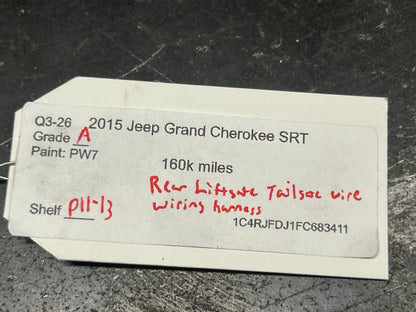 Q3-26 2015 Jeep Grand Cherokee SRT
Grade A
Paint: PW7
160k miles
Rear Liftgate Tailgate wire
wiring harness
Shelf P11-13
1C4RJFDJ1FC683411